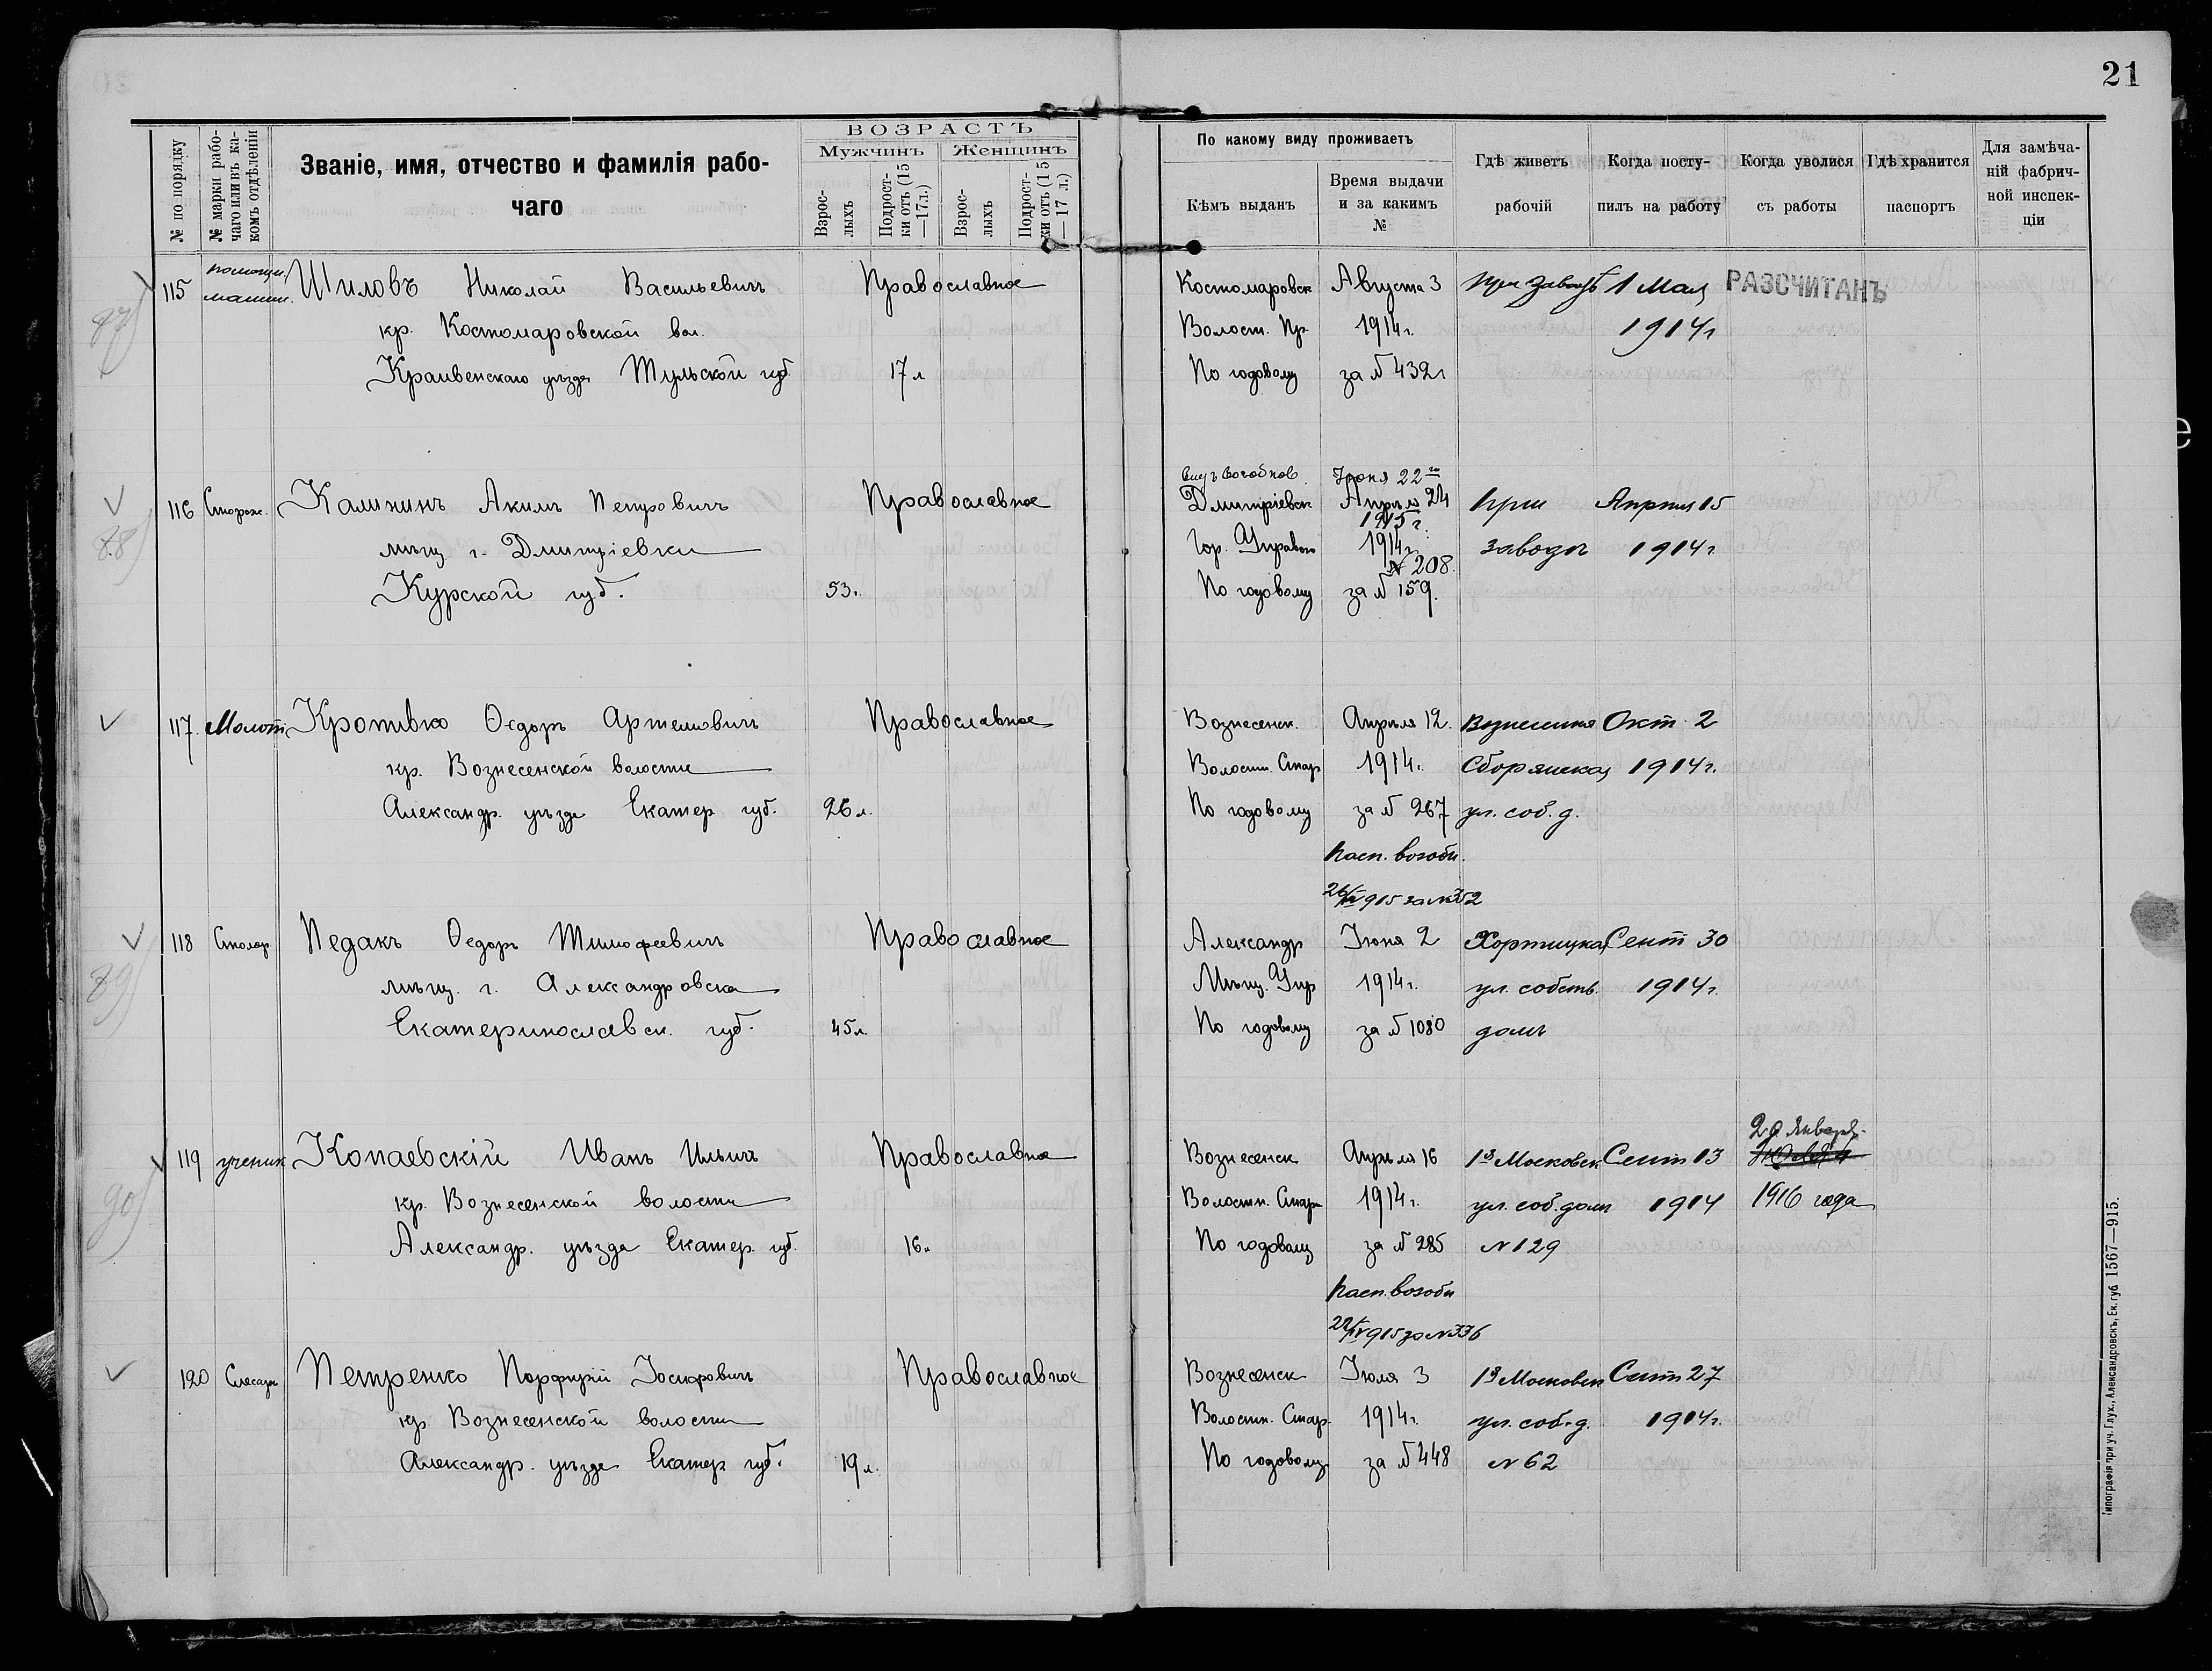 21
№ по порядку
№ марки рабо-
чаго или въ ка-
комъ отдѣленіи
Званіе, имя, отчество и фамилія рабо-
чаго
ВОЗРАСТЪ
Мужчинъ
Женщинъ
Взрос-
лыхъ
Подрост-
ки отъ (15
—17 л.)
Взрос-
лыхъ
Подрост-
ки отъ (15
— 17 л.)
По какому виду проживаетъ
Кѣмъ выданъ
Время выдачи
и за какимъ
№
Гдѣ живетъ
рабочій
Когда посту-
пилъ на работу
Когда уволися
съ работы
Гдѣ хранится
паспортъ
Для замѣча-
ній фабрич-
ной инспек-
ціи
87)
115 помощн. машин. Шиловъ Николай Васильевичъ Православное Костомаровск Августа 3 при заводѣ 1 Мая РАЗСЧИТАНЪ
кр. Костомаровской вол. Волост. Пр. 1914 г. 1914 г
Крапивенскаго уѣзда Тульской губ. 17 л По годовому за № 432
Іюня 22го
116 Сторож. Калининъ Акимъ Петровичъ Православное Дмитріевск Апрѣля 24 при Апрѣля 15
1915 г.
мѣщ. г. Дмитріевки Гор. Управою 1914 г. заводѣ 1914 г.
№ 208.
88)
Курской губ. 53 По годовому за № 159.
117. Молот. Кропивко Ѳедоръ Артемовичъ Православное Вознесенск. Апрѣля 12. Окт. 2
кр. Вознесенской волости Волостн. Стар 1914 г. 1914 г.
Александр. уѣзда Екатер губ. 26 л. По годовому за № 267 ул. соб. д.
Пасп. возобн.
26/IV 915 за № 352
118 Столяр Педакъ Ѳедоръ Тимофеевичъ Православное Александр Іюня 2 Хортицкая Сент 30
89)
мѣщ. г. Александровска Мѣщ. Упр 1914 г. ул. собств. 1914 г.
Екатеринославск. губ. 45 л. По годовому за № 1080 домъ
20 Января
119 ученик Копаевскій Иванъ Ильичъ Православное Вознесенск Апрѣля 16 1я Московск Сент 13
90)
кр. Вознесенской волости Волостн. Стар 1914 г. ул. соб. домъ 1914 1916 года
Александр. уѣзда Екатер. губ. 16 По годовому за № 285 № 129
Пасп. возобн
22/IV 915 за № 336
120 Слесарь Петренко Порфирій Іосифовичъ Православное Вознесенск Іюля 3 1я Московск Сент 27
кр. Вознесенской волости Волостн. Стар. 1914 г. ул. соб. д. 1914 г.
Александр. уѣзда Екатер губ. 19 л. По годовому за № 448 № 62
Типографія при уч. Глух., Александровскъ, Ек. губ 1567—915.